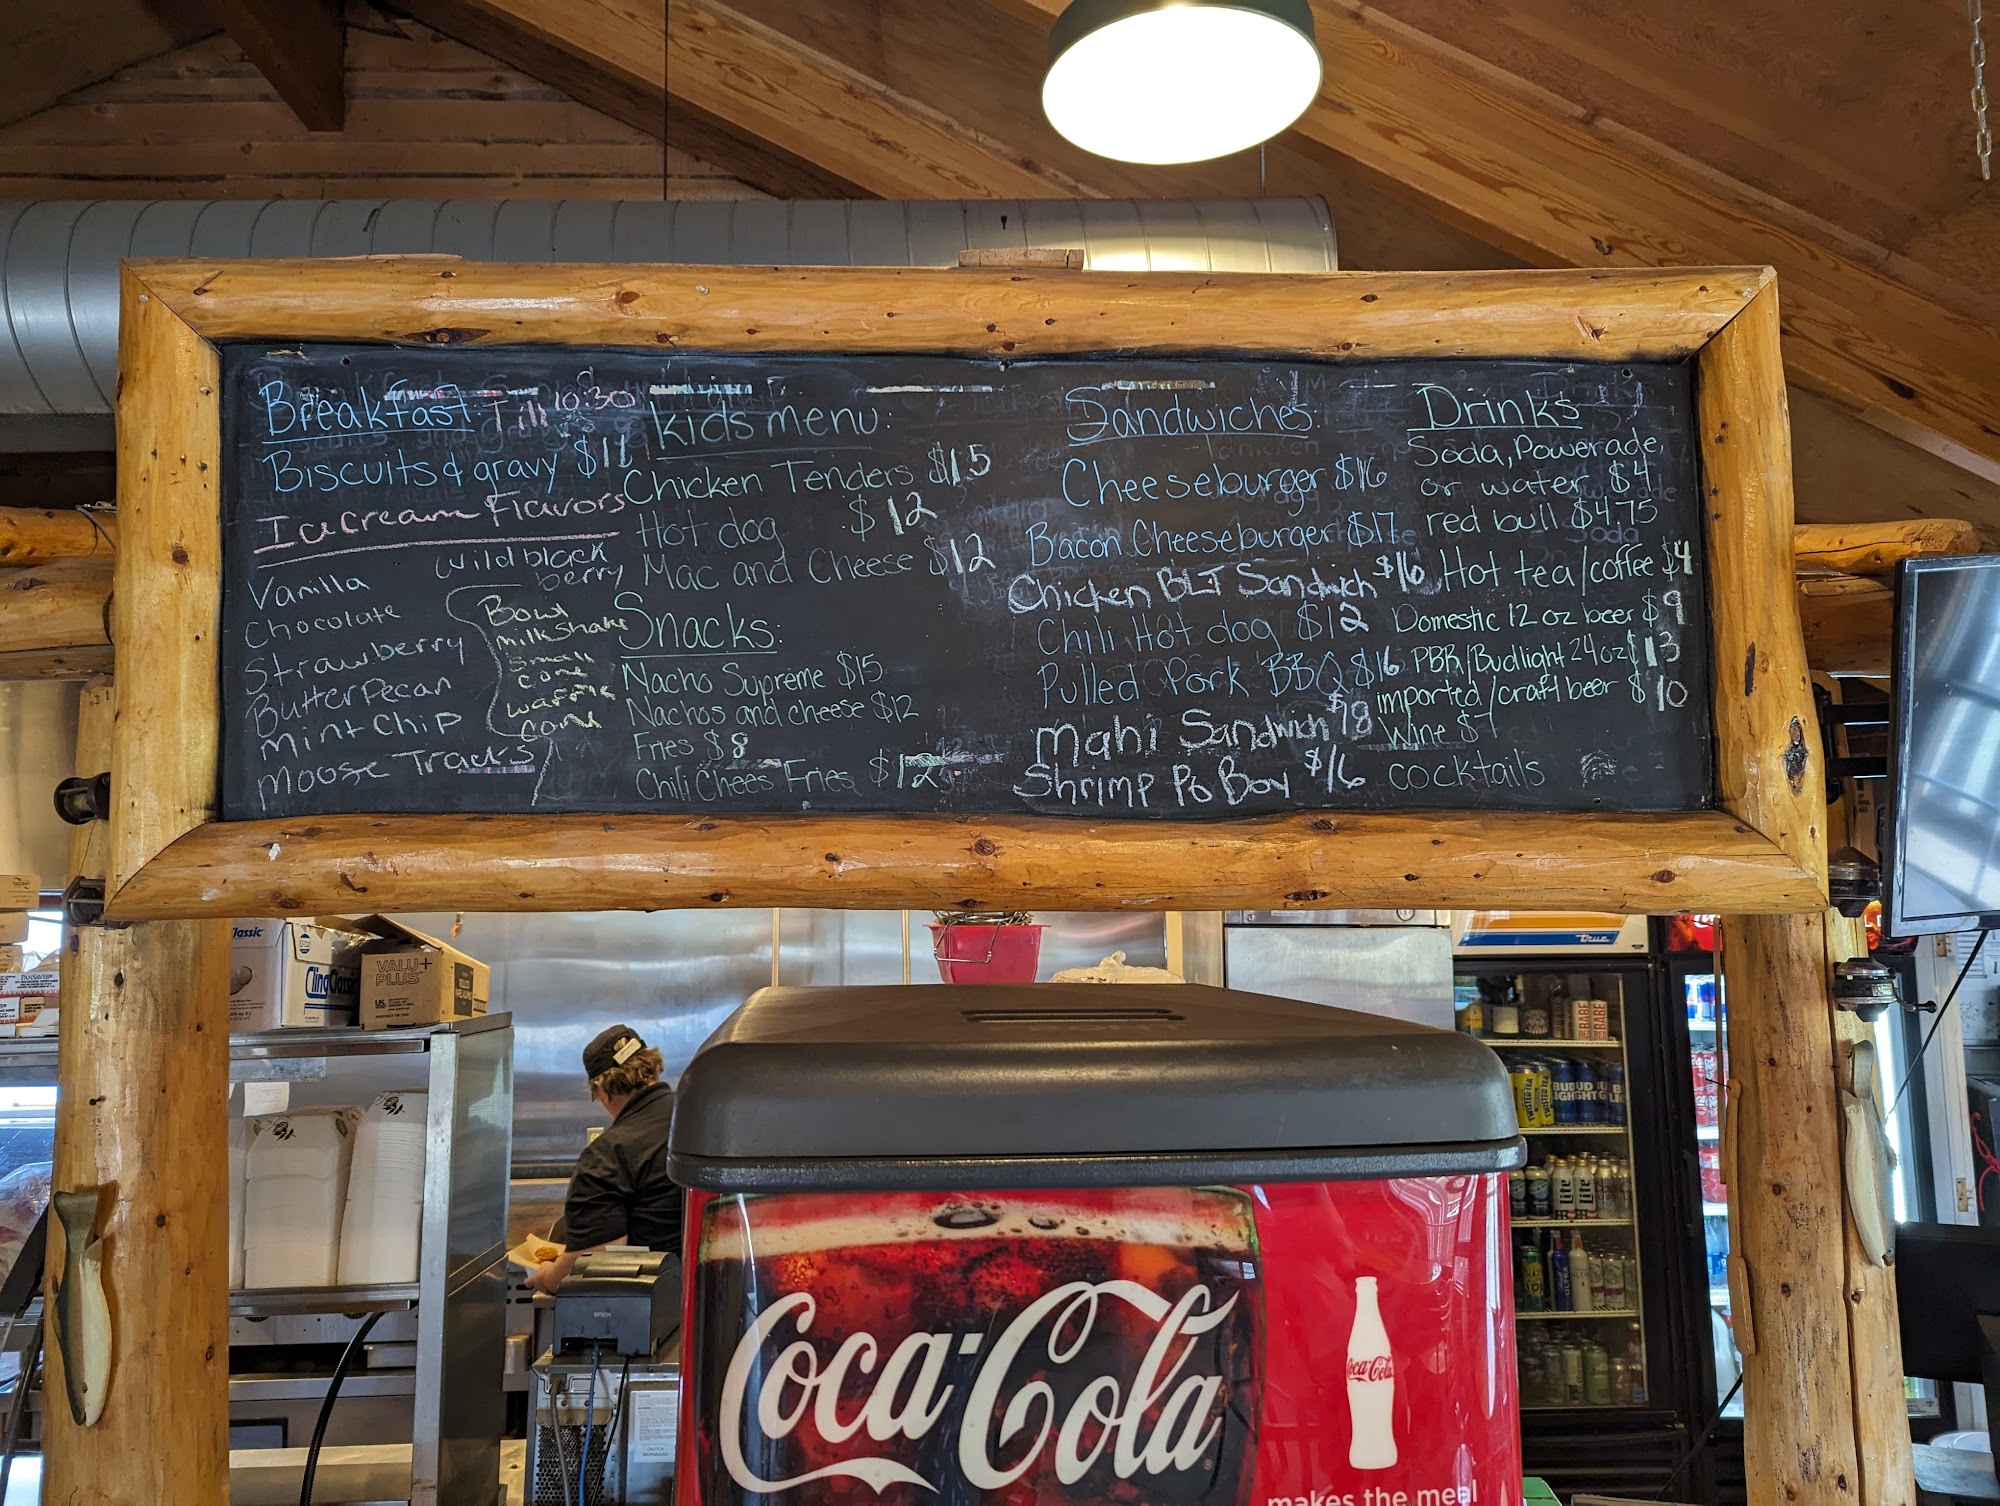 Breakfast Till 10:30
Biscuits & gravy $11
Ice cream Flavors
Vanilla
Chocolate
Strawberry
Butter Pecan
Mint Chip
Moose Tracks
wild black
berry
Bowl
Milkshake
Small
Cone
Waffle
Cone
Kids menu:
Chicken Tenders $15
Hot dog $12
Mac and Cheese $12
Snacks:
Nacho Supreme $15
Nachos and cheese $12
Fries $8
Chili Chees Fries $12
Sandwiches:
Cheeseburger $16
Bacon Cheeseburger $17
Chicken BLT Sandwich $16
Chili Hot dog $12
Pulled Pork BBQ $16
Mahi Sandwich $18
Shrimp Po Boy $16
Drinks
Soda, Powerade,
or water $4
red bull $4.75
Hot tea/coffee $4
Domestic 12 oz beer $9
PBR/Budlight 24oz $13
imported/craft beer $10
Wine $7
cocktails
Classic
ClingClassic
VALU+
PLUS
true
BABE
BABE
TWISTED TEA
BUD
LIGHT
Lite
EPSON
Coca-Cola
Coca-Cola
makes the meal